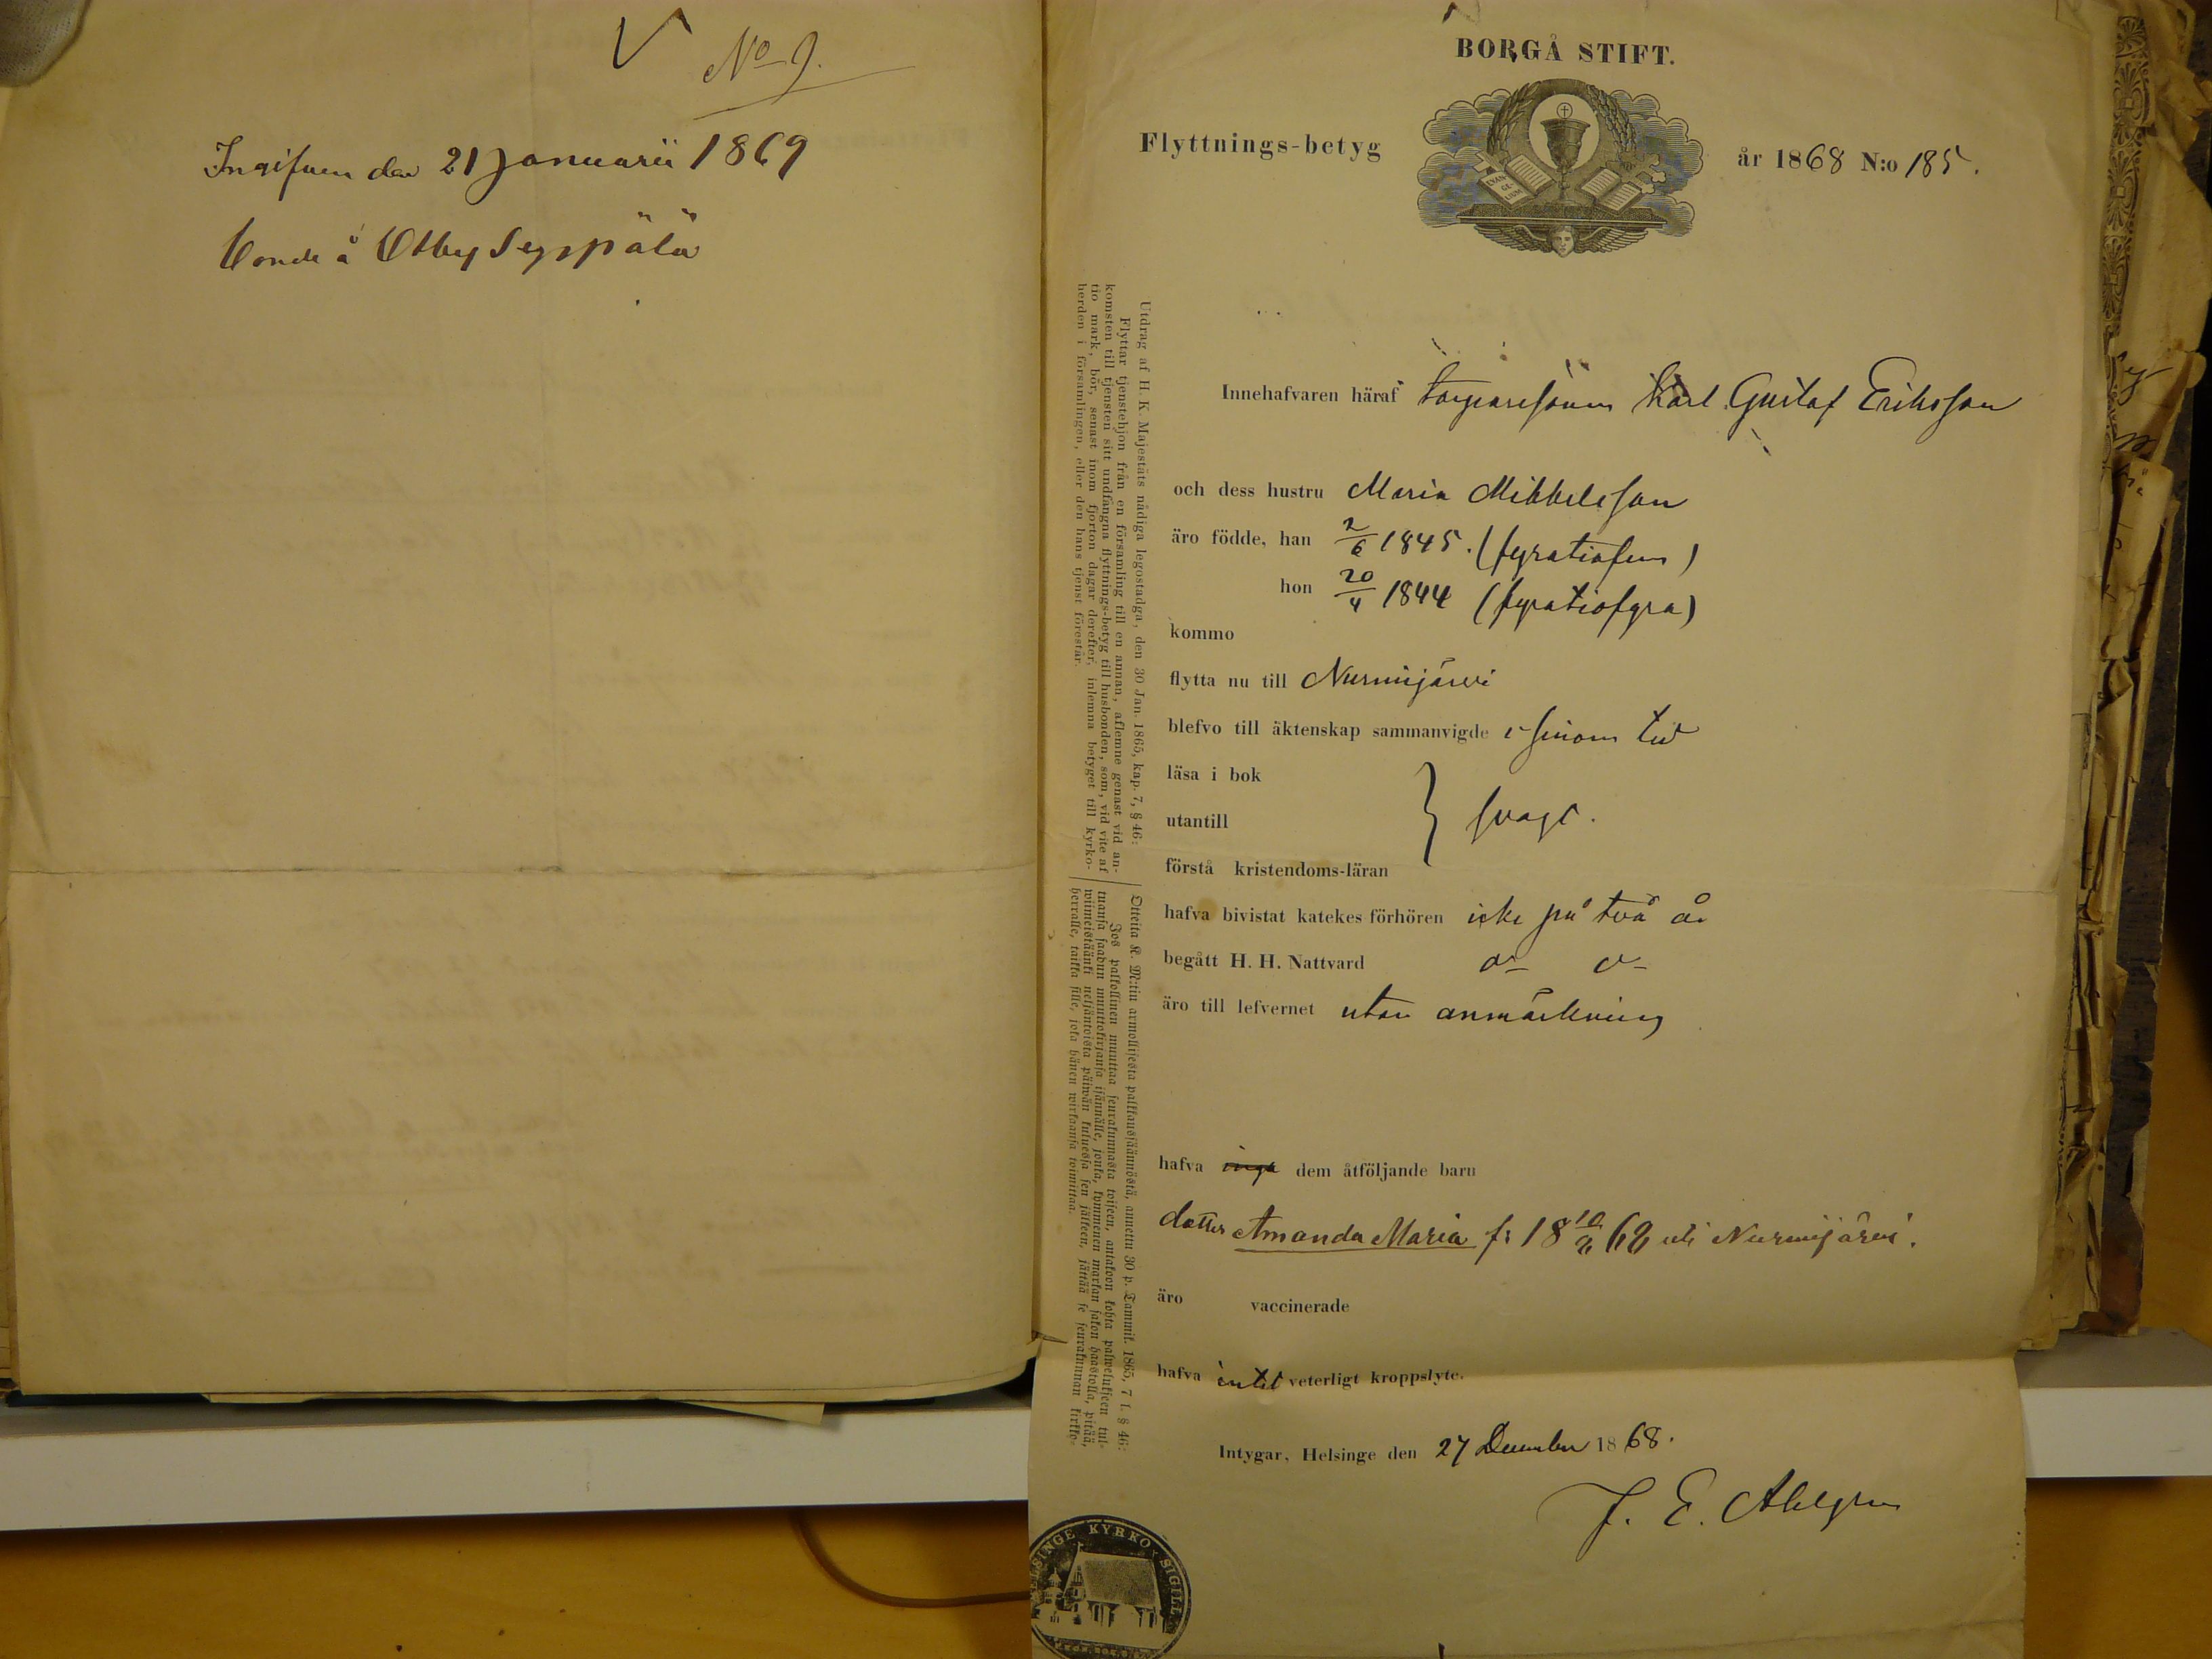 No 9.
Ingifven den 21 Januarii 1869
å Otby Seppälä
BORGÅ STIFT.
Flyttnings-betyg
år 1868 N:o 185.
EVAN-
GE-
LIUM
Innehafvaren häraf torparesonen Karl Gustaf Eriksson
och dess hustru Maria Mikkelsson
äro födde, han 2/6 1845. (fyratiofem)
hon 20/4 1844 (fyratiofyra)
kommo
flytta nu till Nurmijärvi
blefvo till äktenskap sammanvigde i sinom tid
läsa i bok
utantill } svagt.
förstå kristendoms-läran
hafva bivistat katekes-förhören icke på två år
begått H. H. Nattvard
äro till lefvernet utan anmärkning
hafva inga dem åtföljande barn
dotter Amanda Maria f: 18 68 uti Nurmijärvi.
äro vaccinerade
hafva intet veterligt kroppslyte.
Intygar, Helsinge den 27 December 1868.
J. E. Ahlgren
HELSINGE KYRKO SIGILL
Utdrag af H. K. Majestäts nådiga legostadga, den 30 Jan. 1865, kap. 7, § 46:
Flyttar tjenstehjon från en församling till en annan, aflemne genast vid an-
komsten till tjensten sitt undfångna flyttnings-betyg till husbonden, som, vid vite af
tio mark, bör, senast inom fjorton dagar derefter, inlemna betyget till kyrko-
herden i församlingen, eller den hans tjenst förestår.
Otteita K. M:tin armollisesta palkkaussäännöstä, annettu 30 p. Tammik. 1865, 7 l. § 46:
Jos palkollinen muuttaa seurakunnasta toiseen, antakoon kohta palwelukseen tul-
tuansa saadun muuttokirjansa isännälle, jonka, kymmenen markan sakon haastolla, pitää,
wiimeistäänki neljäntoista päiwän kuluessa sen jälkeen, jättää se seurakunnan kirkko-
herralle, taikka sille, joka hänen wirkaansa toimittaa.